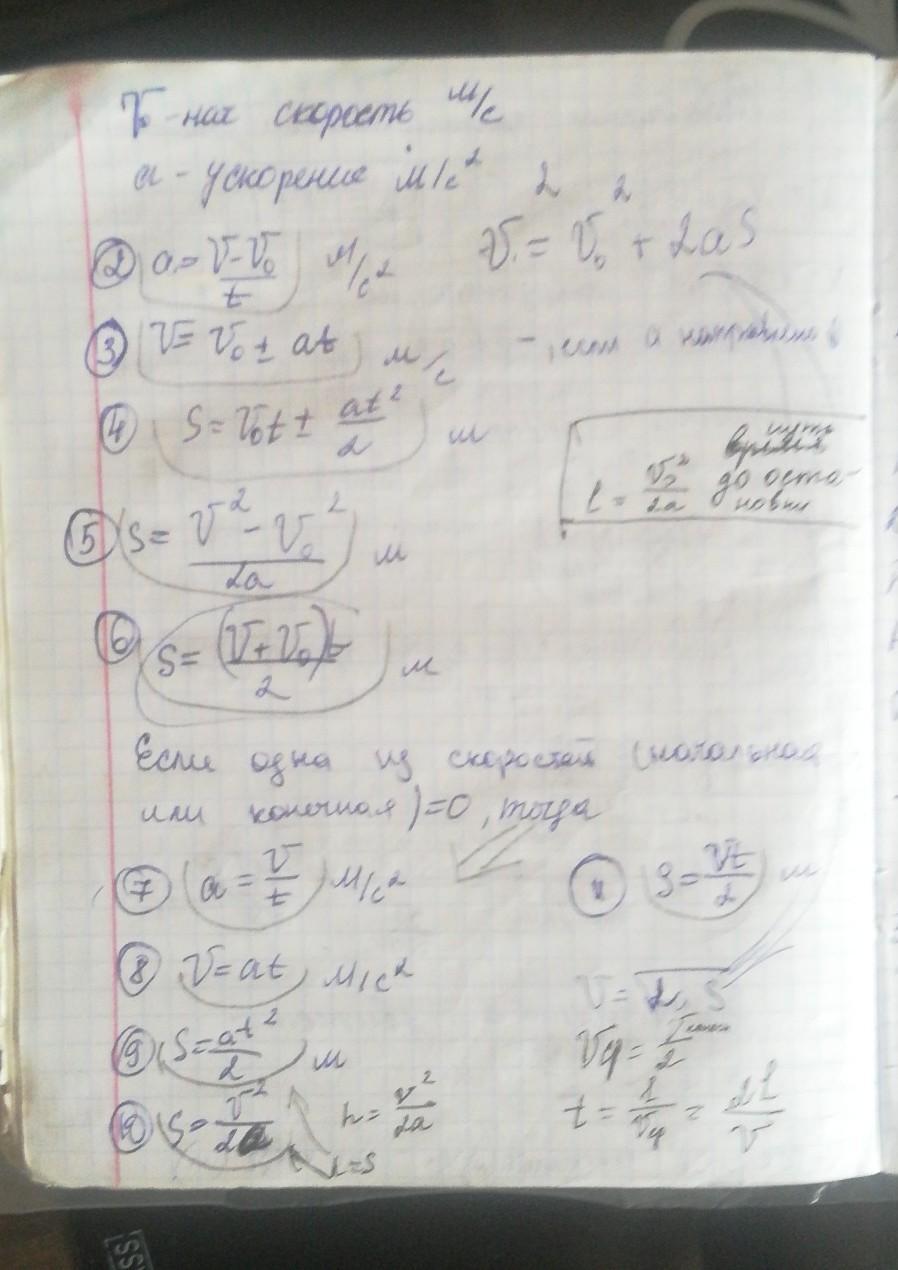 V₀ - нач скорость м/с
a - ускорение м/с²
② a = (V - V₀)/t м/с² V² = V₀² + 2aS
③ V = V₀ ± at м/с - , если a направлена в
④ S = V₀t ± at²/2 м
l = V₀²/2a путь до оста-
новки
⑤ S = (V² - V₀²)/2a м
⑥ S = (V + V₀)t/2 м
Если одна из скоростей (начальная
или конечная) = 0, тогда
⑦ a = V/t м/с² ⑪ S = Vt/2 м
⑧ V = at м/с²
⑨ S = at²/2 м
⑩ S = V²/2a h = V²/2a t = l/Vср = 2l/V
l = S